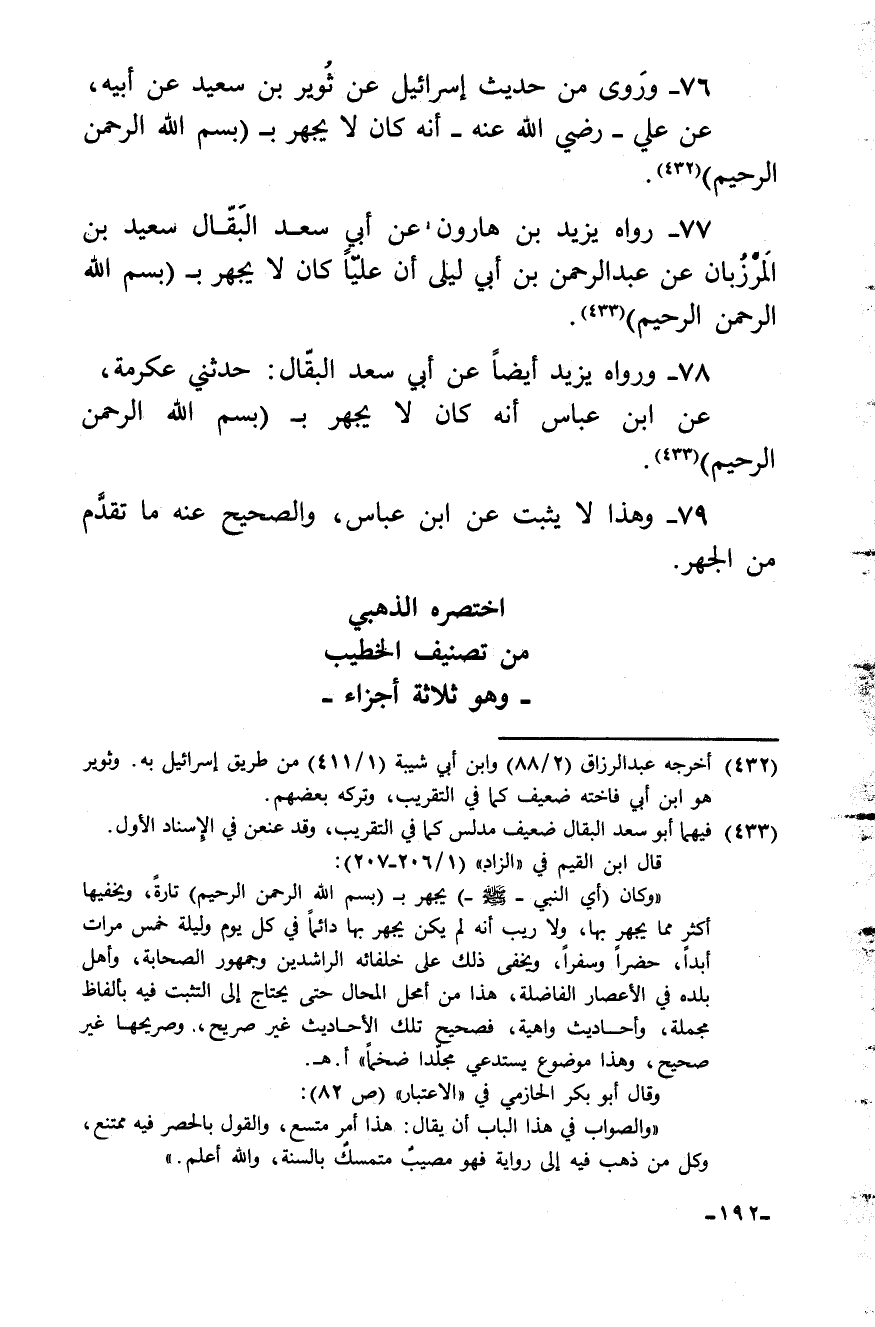 ٧٦ـ ورَوى من حديث إسرائيل عن ثُوير بن سعيد عن أبيه،
عن علي ـ رضي الله عنه ـ أنه كان لا يجهر بـ (بسم الله الرحمن
الرحيم)(٤٣٢).
٧٧ـ رواه يزيد بن هارون عن أبي سعد البَقّال سعيد بن
المَرْزُبان عن عبدالرحمن بن أبي ليلى أن عليّاً كان لا يجهر بـ (بسم الله
الرحمن الرحيم)(٤٣٣).
٧٨ـ ورواه يزيد أيضاً عن أبي سعد البقّال: حدثني عكرمة،
عن ابن عباس أنه كان لا يجهر بـ (بسم الله الرحمن
الرحيم)(٤٣٣).
٧٩ـ وهذا لا يثبت عن ابن عباس، والصحيح عنه ما تقدَّم
من الجهر.
اختصره الذهبي
من تصنيف الخطيب
ـ وهو ثلاثة أجزاء ـ
(٤٣٢) أخرجه عبدالرزاق (٨٨/٢) وابن أبي شيبة (٤١١/١) من طريق إسرائيل به. وثوير
هو ابن أبي فاخته ضعيف كما في التقريب، وتركه بعضهم.
(٤٣٣) فيهما أبو سعد البقال ضعيف مدلس كما في التقريب، وقد عنعن في الإسناد الأول.
قال ابن القيم في «الزاد» (٢٠٦/١ـ٢٠٧):
«وكان (أي النبي ـ ﷺ ـ) يجهر بـ (بسم الله الرحمن الرحيم) تارةً، ويخفيها
أكثر مما يجهر بها، ولا ريب أنه لم يكن يجهر بها دائماً في كل يوم وليلة خمس مرات
أبداً، حضراً وسفراً، ويخفى ذلك على خلفائه الراشدين وجمهور الصحابة، وأهل
بلده في الأعصار الفاضلة، هذا من أمحل المحال حتى يحتاج إلى التثبت فيه بألفاظ
مجملة، وأحـاديث واهية، فصحيح تلك الأحاديث غير صريح،. وصريحها غير
صحيح، وهذا موضوع يستدعي مجلّدا ضخماً» أ.هـ.
وقال أبو بكر الحازمي في «الاعتبار» (ص ٨٢):
«والصواب في هذا الباب أن يقال: هذا أمر متسع، والقول بالحصر فيه ممتنع،
وكل من ذهب فيه إلى رواية فهو مصيبٌ متمسكٌ بالسنة، والله أعلم.»
ـ١٩٢ـ